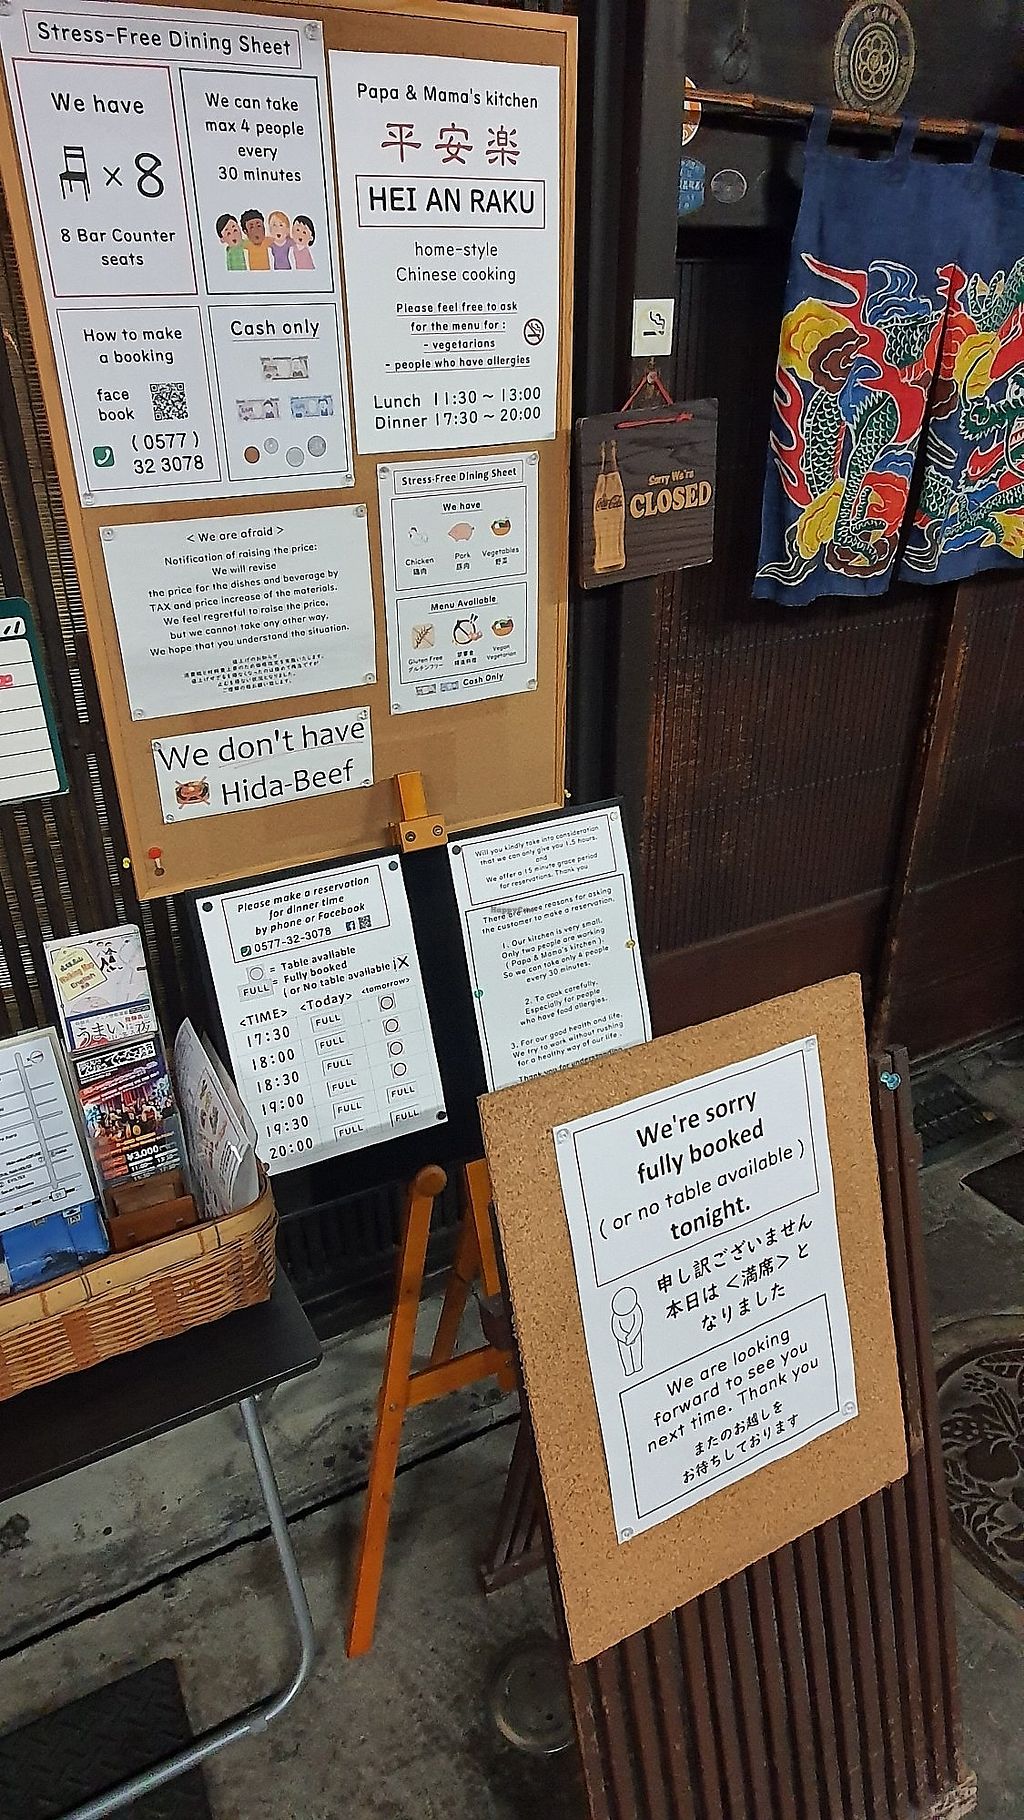 Stress-Free Dining Sheet
We have
× 8
8 Bar Counter
seats
We can take
max 4 people
every
30 minutes
How to make
a booking
face
book
( 0577 )
32 3078
Cash only
Papa & Mama's kitchen
平安楽
HEI AN RAKU
home-style
Chinese cooking
Please feel free to ask
for the menu for :
- vegetarians
- people who have allergies
Lunch 11:30 ~ 13:00
Dinner 17:30 ~ 20:00
Sorry We're
CLOSED
Coca-Cola
< We are afraid >
Notification of raising the price:
We will revise
the price for the dishes and beverage by
TAX and price increase of the materials.
We feel regretful to raise the price,
but we cannot take any other way.
We hope that you understand the situation.
Stress-Free Dining Sheet
We have
Chicken
鶏肉
Pork
豚肉
Vegetables
野菜
Menu Available
Gluten Free
グルテンフリー
Vegan
Vegetarian
Cash Only
We don't have
Hida-Beef
Please make a reservation
for dinner time
by phone or Facebook
0577-32-3078
= Table available
FULL = Fully booked
( or No table available )
<TIME> <Today> <tomorrow>
17:30 FULL
18:00 FULL
18:30 FULL
19:00 FULL
19:30 FULL FULL
20:00 FULL FULL
Will you kindly take into consideration
that we can only give you 1.5 hours.
and
We offer a 15 minute grace period
for reservations. Thank you
There are three reasons for asking
the customer to make a reservation.
1. Our kitchen is very small.
Only two people are working
( Papa & Mama's kitchen ).
So we can take only 4 people
every 30 minutes.
2. To cook carefully.
Especially for people
who have food allergies.
3. For our good health and life.
We try to work without rushing
for a healthy way of our life.
Thank you for understanding
HappyCow
うまい
¥3,000
We're sorry
fully booked
( or no table available )
tonight.
申し訳ございません
本日は＜満席＞と
なりました
We are looking
forward to see you
next time. Thank you
またのお越しを
お待ちしております